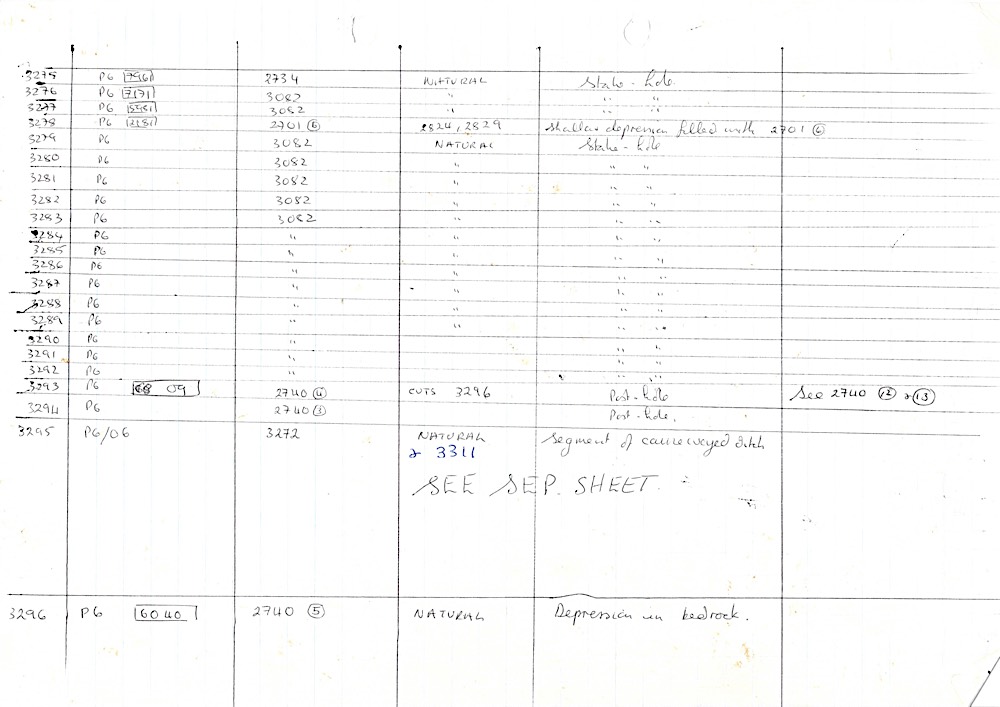 3275 P6 7961 2734 NATURAL Stake-hole
3276 P6 7171 3082 " " "
3277 P6 3082 " " "
3278 P6 2701 (6) 2824, 2829 Shallow depression filled with 2701 (6)
3279 P6 3082 NATURAL Stake-hole
3280 P6 3082 " " "
3281 P6 3082 " " "
3282 P6 3082 " " "
3283 P6 3082 " " "
3284 P6 " " " "
3285 P6 " " " "
3286 P6 " " " "
3287 P6 " " " "
3288 P6 " " " "
3289 P6 " " " "
3290 P6 " " "
3291 P6 " " "
3292 P6 " " "
3293 P6 68 09 2740 (4) CUTS 3296 Post-hole See 2740 (12) & (13)
3294 P6 2740 (3) Post-hole.
3295 P6/O6 3272 NATURAL Segment of causewayed ditch
& 3311
SEE SEP. SHEET.
3296 P6 60 40 2740 (5) NATURAL Depression in bedrock.